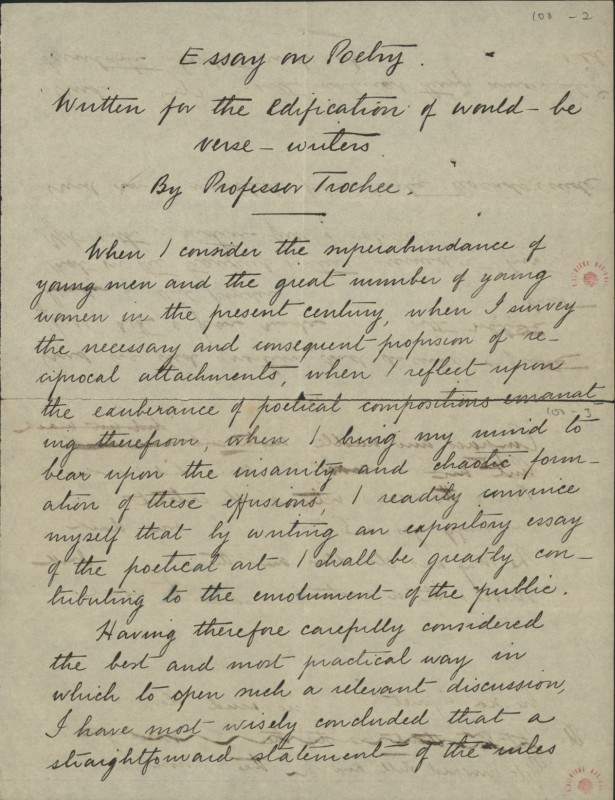 101 - 2
Essay on Poetry.
Written for the Edification of would-be
verse-writers
By Professor Trochee.
When I consider the superabundance of
young men and the great number of young
women in the present century, when I survey
the necessary and consequent profusion of re-
ciprocal attachments, when I reflect upon
the exuberance of poetical compositions emanat-
101 - 3
ing therefrom, when I bring my mind to
bear upon the insanity and chaotic form-
ation of these effusions, I readily convince
myself that by writing an expository essay
of the poetical art I shall be greatly con-
tributing to the emolument of the public.
Having therefore carefully considered
the best and most practical way in
which to open such a relevant discussion,
I have most wisely concluded that a
straightforward statement of the rules